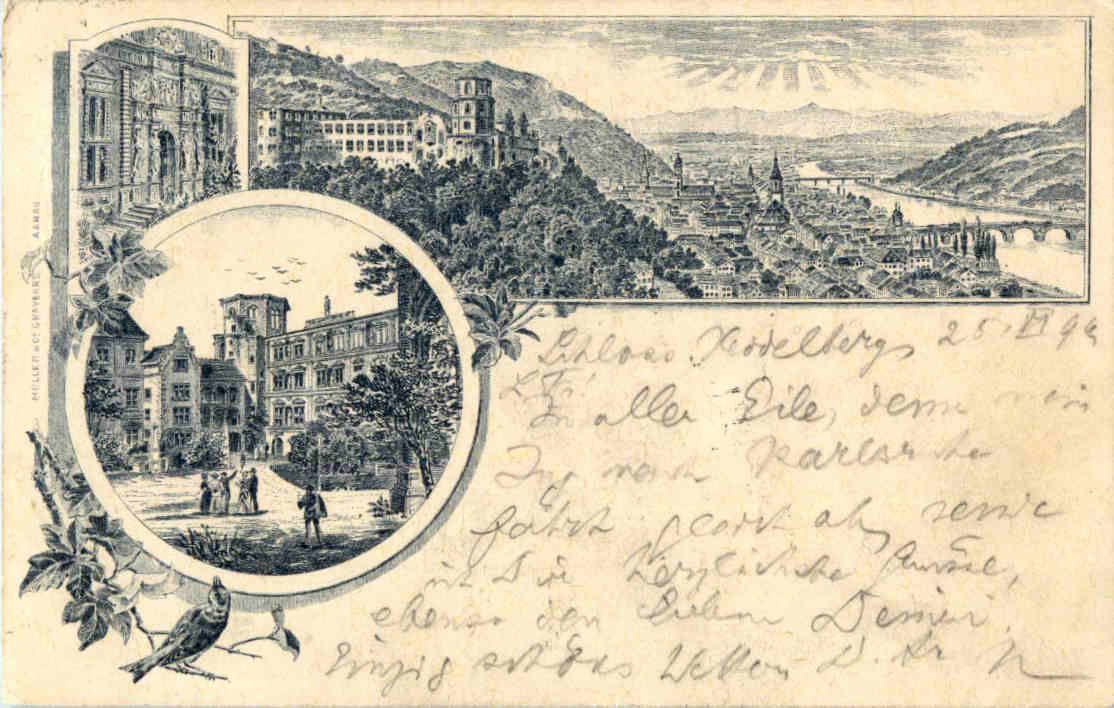 MÜLLER & Co GRAVEURE AARAU
Schloss Heidelberg 25 VI 94
L. Fr!
In aller Eile, denn mein
Zug nach Karlsruhe
fährt gleich ab, sende
ich Dir herzlichste Grüsse,
ebenso den lieben Deinen.
Einzig schönes Wetter. D.